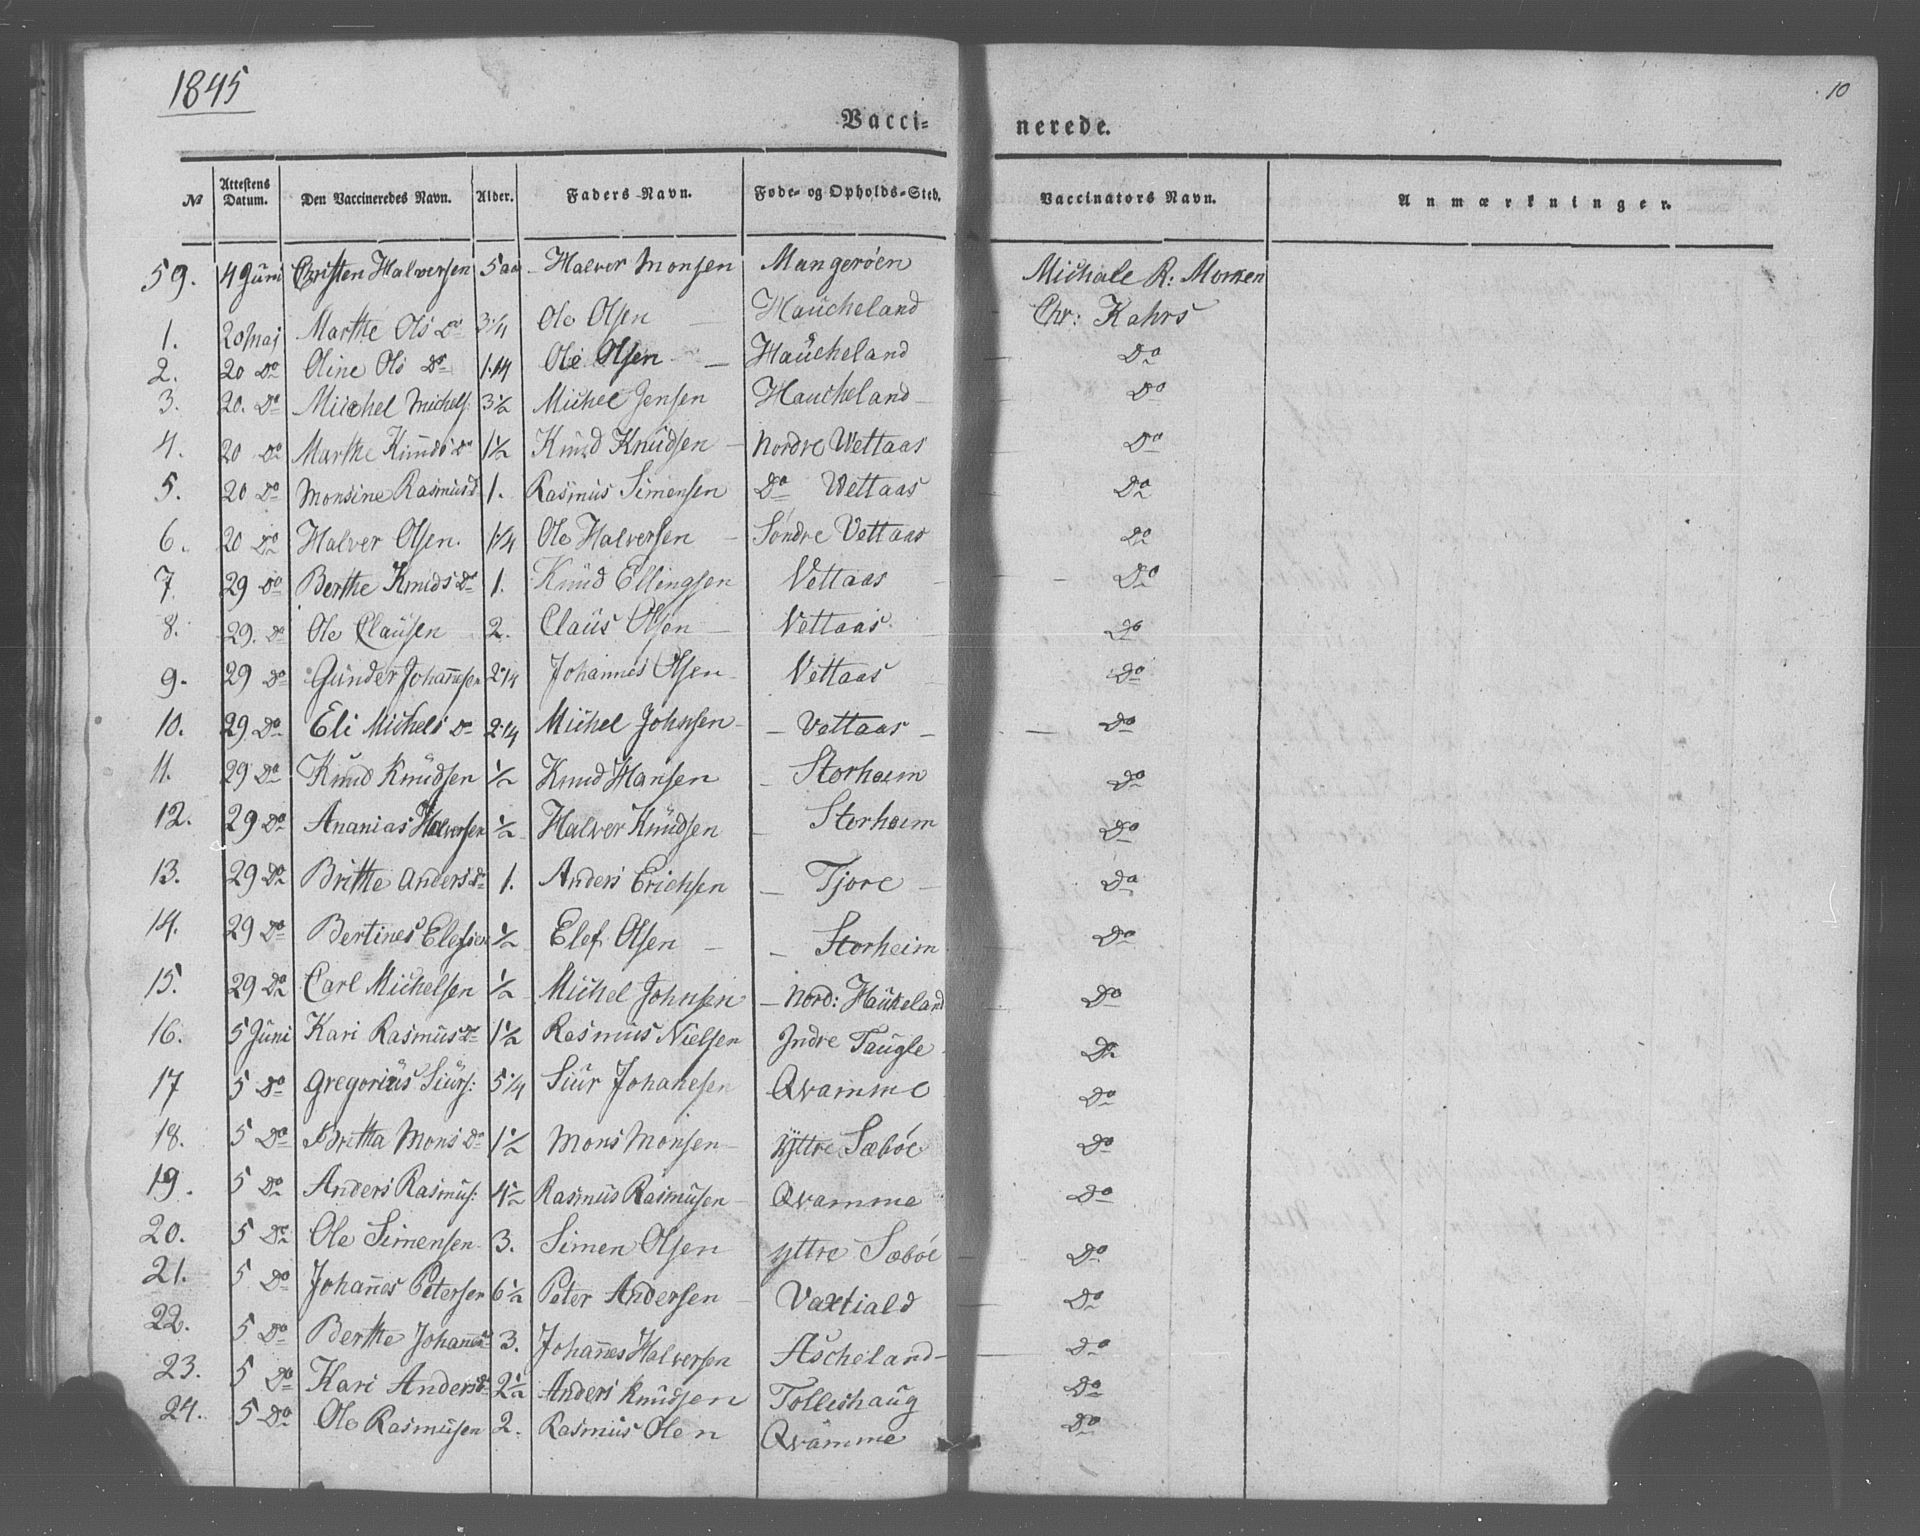 1845
10
Vacci- nerede.
№ Attestens Datum. Den Vaccineredes Navn. Alder. Faders Navn. Føde- og Opholds-Sted. Vaccinators Navn. Anmærkninger.
59. 4 Juni Christen Halversen 5 aar Halver Monsen Mangerøen Michale R: Morken
1. 20 Maj Marthe Ols Do 3 1/4 Ole Olsen Haucheland Chr: Kahrs
2. 20 Do Oline Ols Do 1 1/4 Ole Olsen Haucheland Do
3. 20. Do Michel Michels: 3 1/2 Michel Jensen Haucheland Do
4. 20 Do Marthe Knuds Do 1 1/2 Knud Knudsen Nordre Wettaas Do
5. 20 Do Monsine Rasmusd 1. Rasmus Simensen Do Wettaas Do
6. 20 Do Halver Olsen. 1 1/4 Ole Halversen Søndre Vettaas Do
7. 29 Do Berthe Knuds Do 1. Knud Ellingsen Vettaas Do
8. 29. Do Ole Clausen 2. Claus Olsen Vettaas Do
9. 29 Do Gunder Johannsen 2 1/4 Johannes Olsen Vettaas Do
10. 29 Do Eli Michels Do 2 1/4 Michel Johnsen Vettaas Do
11. 29 Do Knud Knudsen 1/2 Knud Hansen Storheim Do
12. 29 Do Ananias Halversen 1/2 Halver Knudsen Storheim Do
13. 29 Do Britte Anders Do 1. Anders Erichsen Tjore Do
14. 29 Do Bertines Elefsen 1/2 Elef Olsen Storheim Do
15. 29 Do Carl Michelsen 1/2 Michel Johnsen Nord: Haukeland Do
16. 5 Juni Kari Rasmus Do 1 1/2 Rasmus Nielsen Indre Taugle Do
17 5 Do Gregorius Siurs: 5 1/4 Siur Johanesen Qvamme Do
18. 5 Do Britta Mons Do 1 1/2 Mons Monsen Yttre Sæbøe Do
19. 5 Do Anders Rasmus: 4 1/2 Rasmus Rasmusen Qvamme Do
20. 5 Do Ole Simensen 3. Simen Olsen Yttre Sæbøe Do
21. 5 Do Johannes Petersen 6 1/2 Peter Andersen Vaxtiald Do
22. 5 Do Berthe Johannes 3. Johannes Halversen Ascheland Do
23. 5 Do Kari Andersd 2 1/2 Anders Knudsen Tolleshaug Do
24. 5 Do Ole Rasmusen 2. Rasmus Olen Qvamme Do